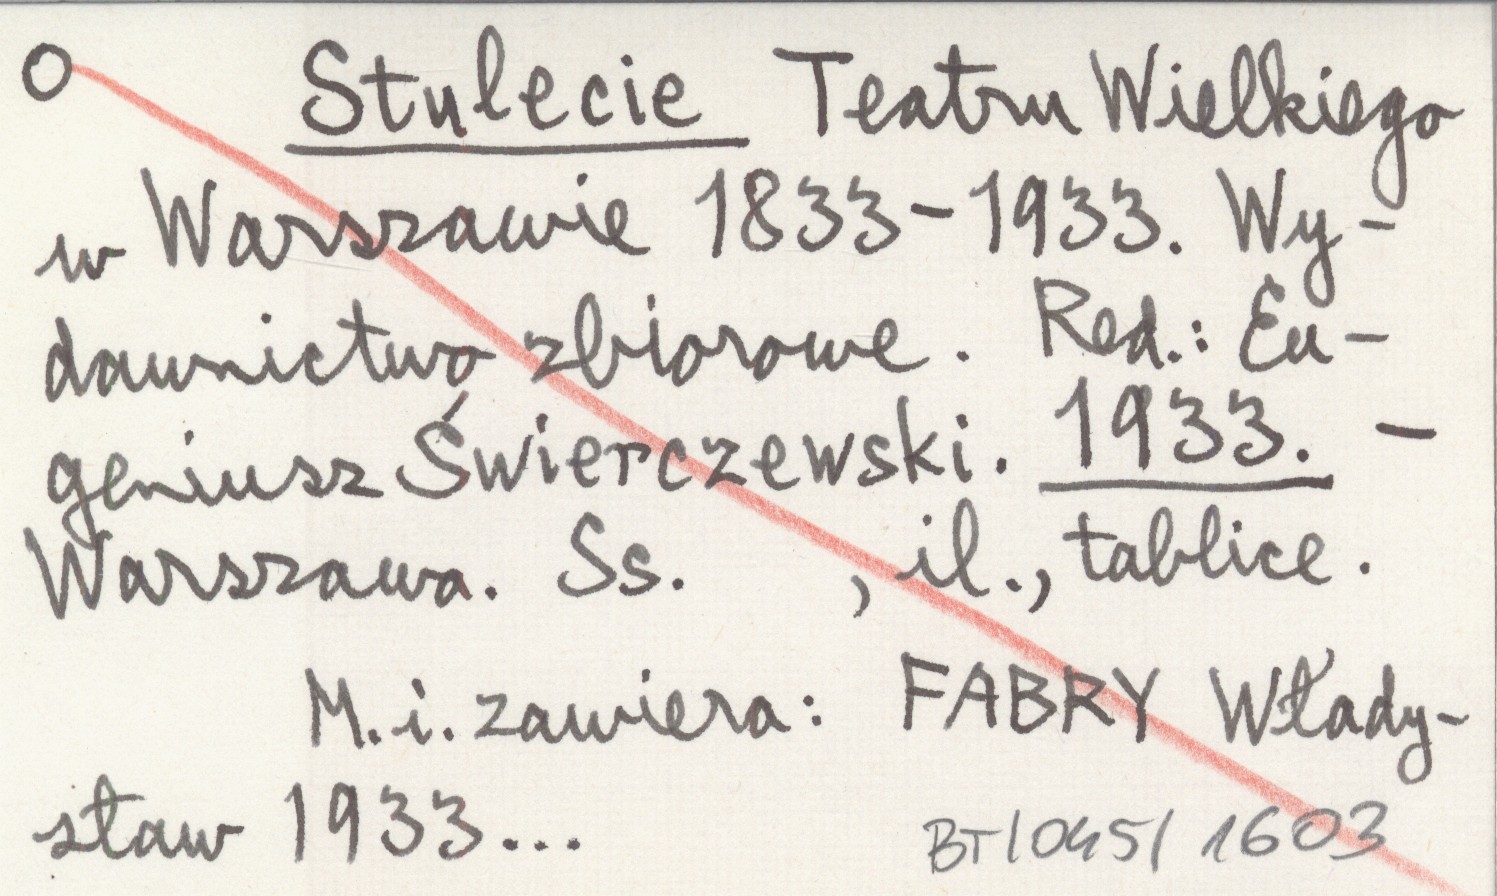 O Stulecie Teatru Wielkiego
w Warszawie 1833-1933. Wy-
dawnictwo zbiorowe. Red.: Eu-
geniusz Świerczewski. 1933. -
Warszawa. Ss. , il., tablice.
M.i. zawiera: FABRY Włady-
sław 1933...
BT/045/1603